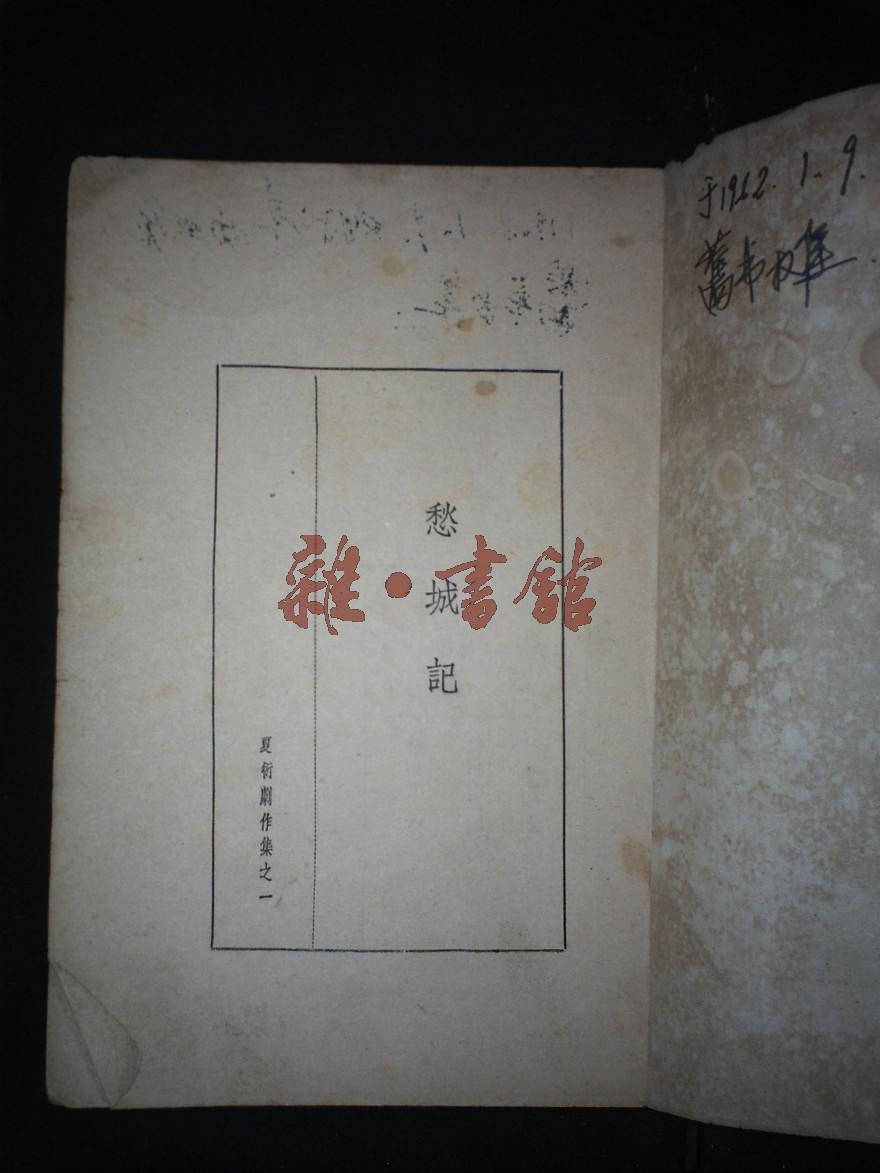 愁城記
夏衍劇作集之一
雜·書館
于1962.1.9.
舊书